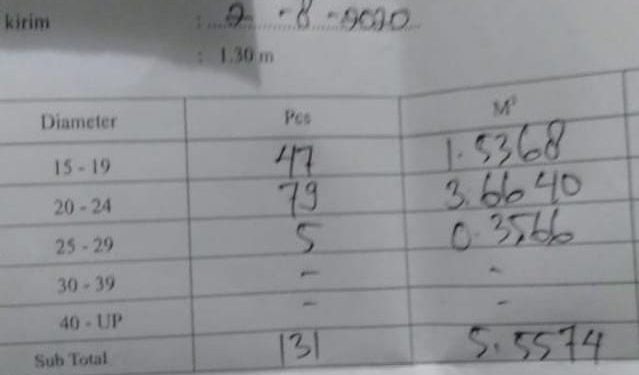 kirim : 2 - 8 - 2020
: 1.30 m
Diameter Pcs M³
15 - 19 47 1.5368
20 - 24 79 3.6640
25 - 29 5 0.3566
30 - 39 - -
40 - UP - -
Sub Total 131 5.5574